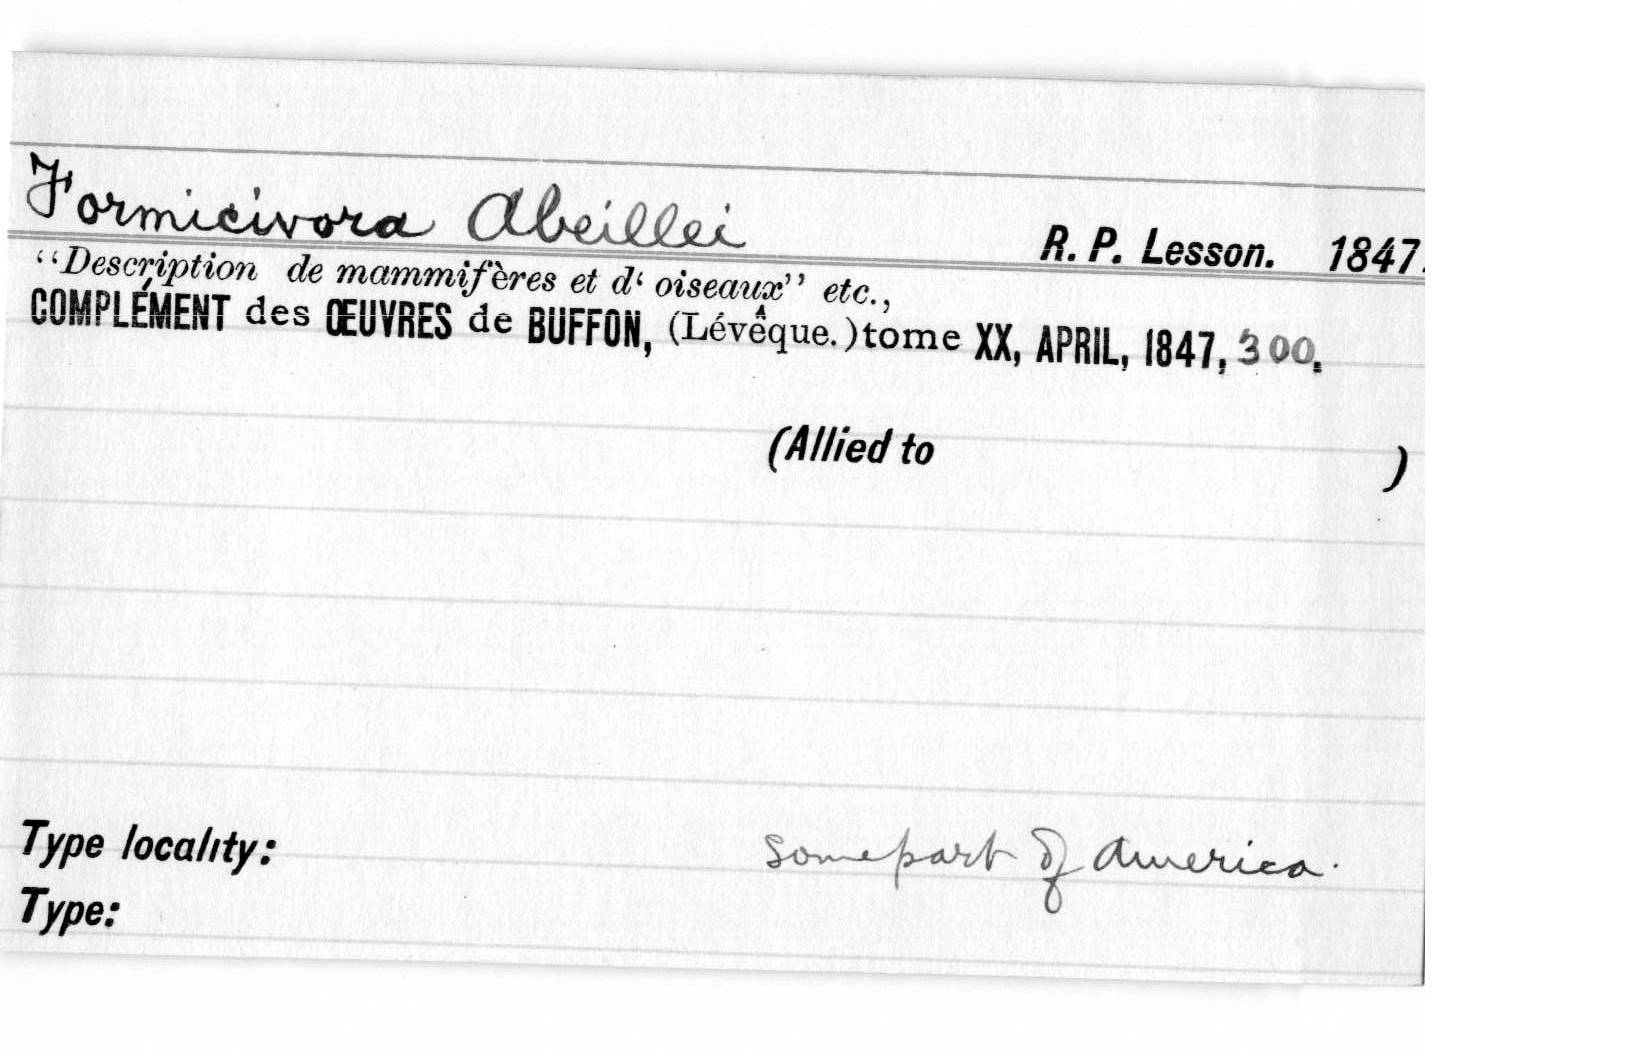 Formicivora Abeillei R. P. Lesson. 1847.
“Description de mammifères et d‘ oiseaux” etc.,
COMPLÉMENT des ŒUVRES de BUFFON, (Lévêque.) tome XX, APRIL, 1847, 300.
(Allied to )
Type locality: some part of America.
Type: